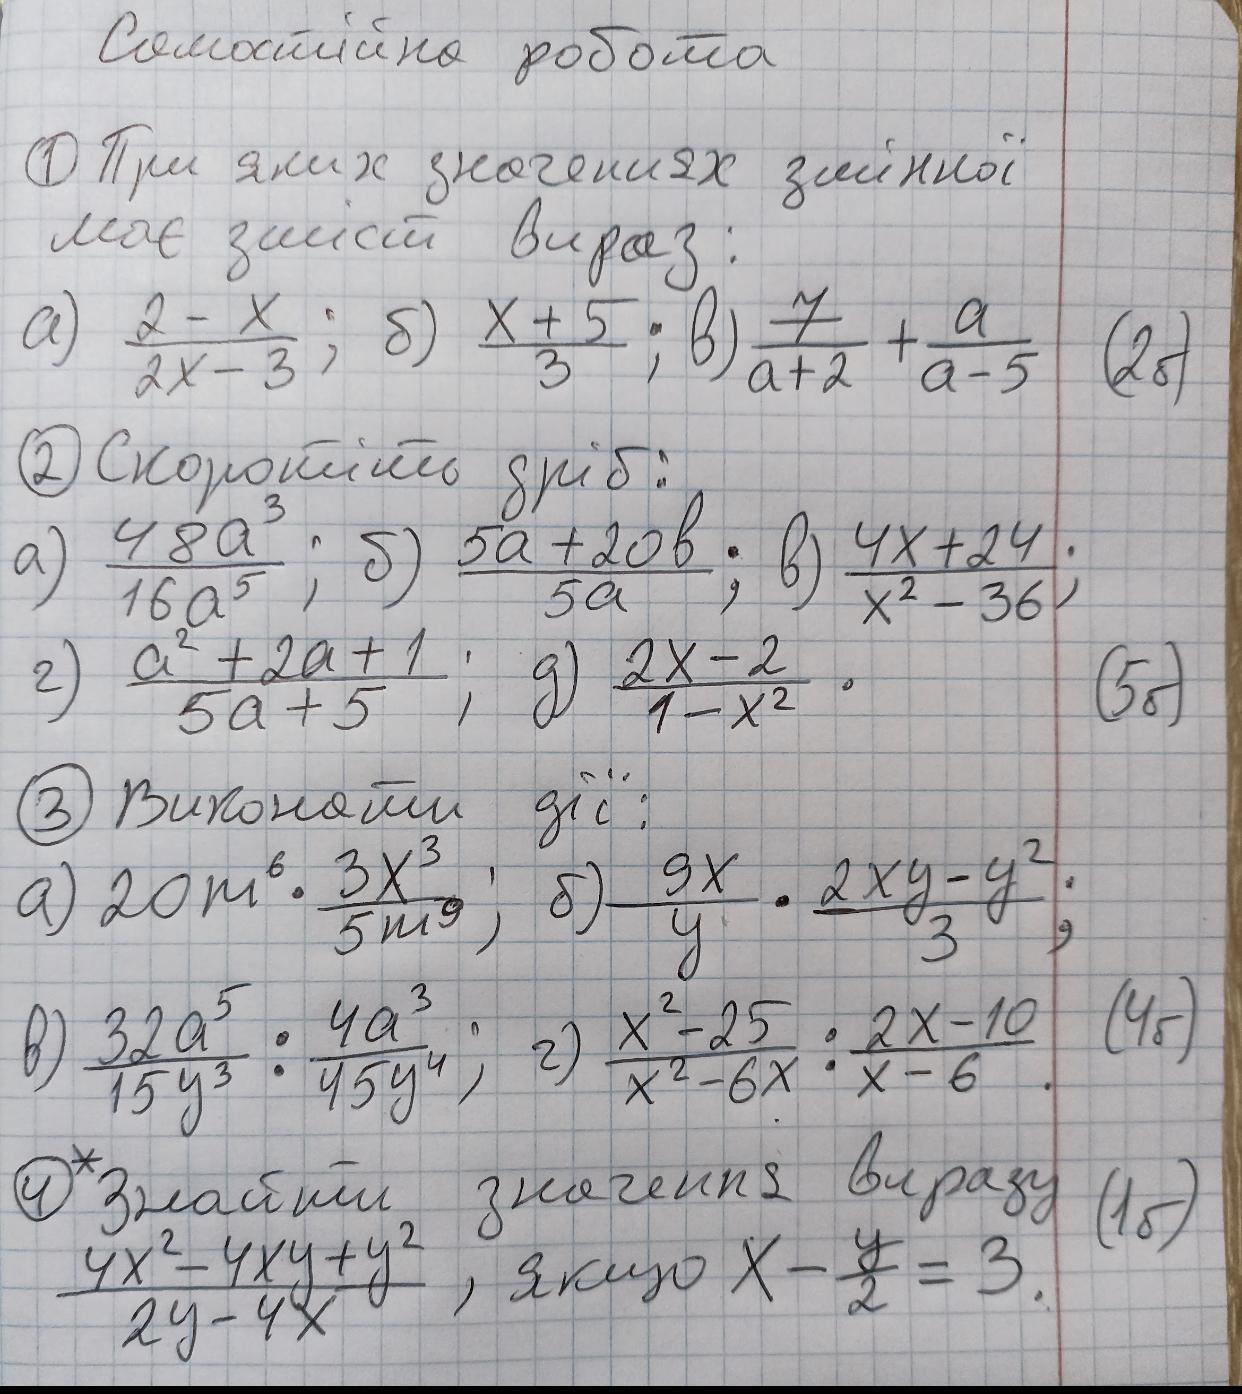 Самостійна робота
① При яких значеннях змінної
має зміст вираз:
а) (2 - x)/(2x - 3); б) (x + 5)/3; в) 7/(a+2) + a/(a-5) (2б)
② Скоротіть дріб:
а) 48a³/16a⁵; б) (5a + 20b)/5a; в) (4x+24)/(x² - 36);
г) (a² + 2a + 1)/(5a + 5); д) (2x - 2)/(1 - x²). (5б)
③ Виконати дії:
а) 20m⁶ · 3x³/5m⁹; б) 9x/y · (2xy - y²)/3;
в) 32a⁵/15y³ : 4a³/45y⁴; г) (x² - 25)/(x² - 6x) : (2x - 10)/(x - 6). (4б)
④* Знайти значення виразу (1б)
(4x² - 4xy + y²)/(2y - 4x), якщо x - y/2 = 3.